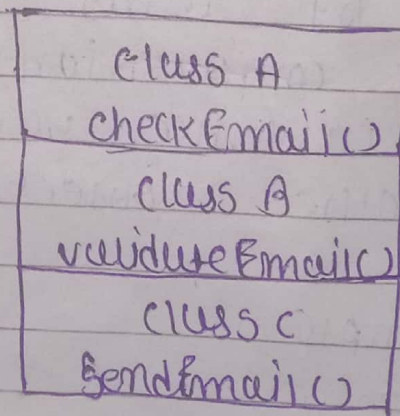 class A
checkEmail()
class B
validateEmail()
class C
SendEmail()